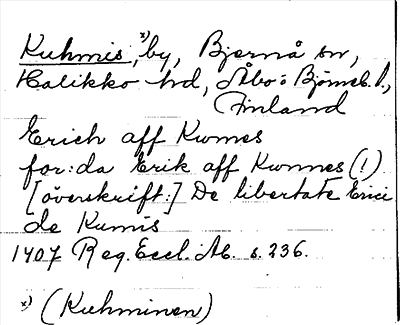 Kuhmis,ˣ⁾ by, Bjernå sn,
Halikko hd, Åbo o Björneb. l.,
Finland
Erich aff Kwmes
for:da Erik aff Kwmes (!)
[överskrift:] De libertate Erici
de Kumis
1407 Reg. Eccl. Ab. s. 236.
x) (Kuhminen)